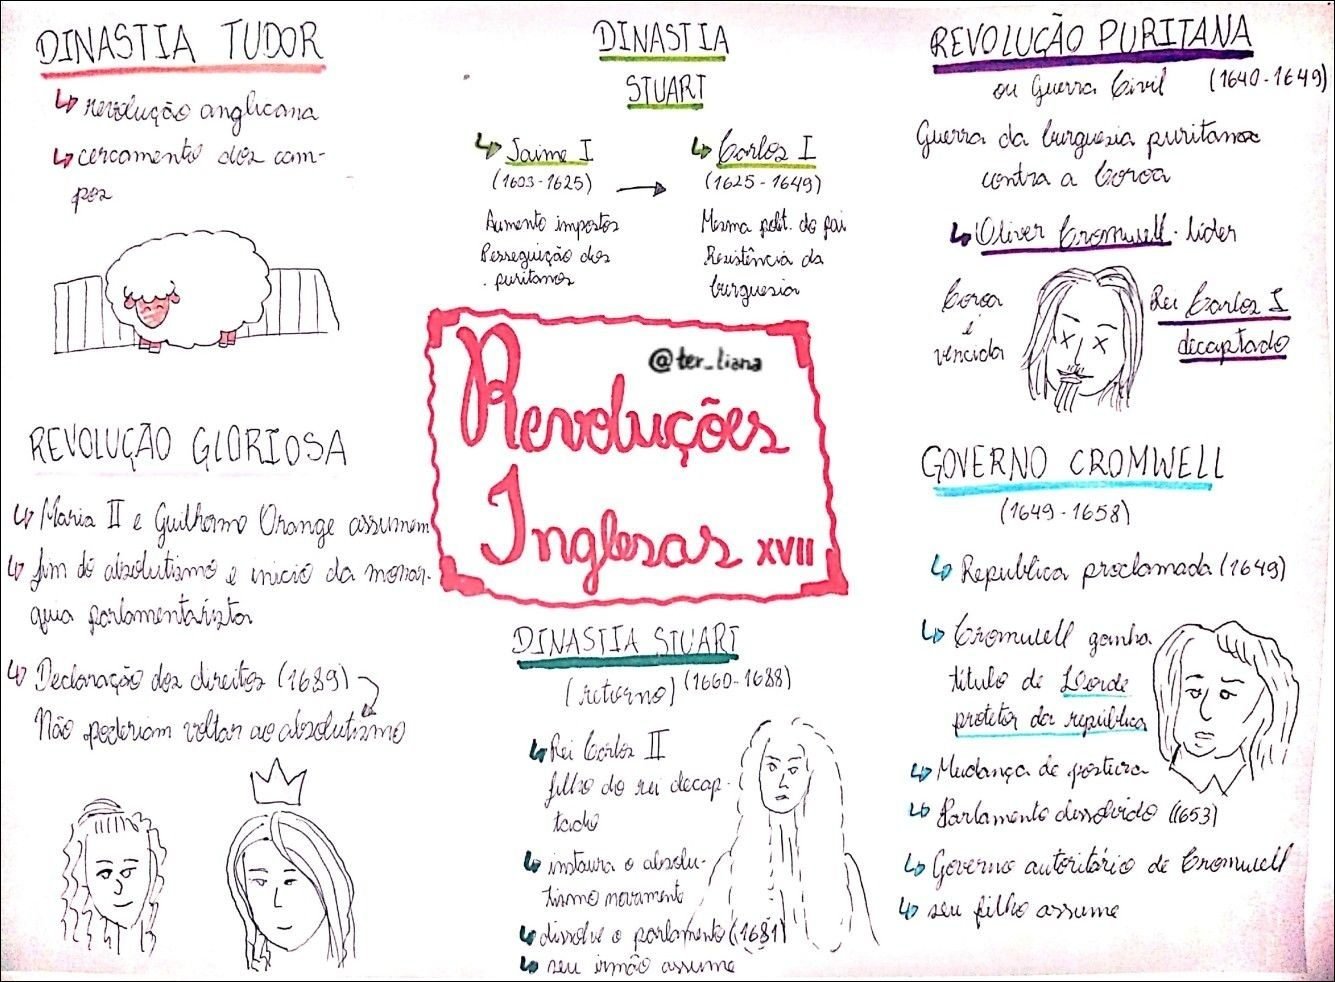 DINASTIA TUDOR
↳ revolução anglicana
↳ cercamento dos cam-
pos
DINASTIA
STUART
↳ Jaime I
(1603-1625)
Aumento impostos
Perseguição dos
puritanos
↳ Carlos I
(1625-1649)
Mesma polít. do pai
Resistência da
burguesia
REVOLUÇÃO PURITANA
ou Guerra Civil (1640-1649)
Guerra da burguesia puritana
contra a Coroa
↳ Oliver Cromwell - líder
Coroa
é
vencida
Rei Carlos I
decaptado
@ter_liana
Revoluções
Inglesas XVII
REVOLUÇÃO GLORIOSA
↳ Maria II e Guilherme Orange assumem
↳ fim do absolutismo e inicio da monar-
quia parlamentarista
↳ Declaração dos direitos (1689)
Não poderiam voltar ao absolutismo
DINASTIA STUART
(retorno) (1660-1688)
↳ Rei Carlos II
filho do rei decap-
tado
↳ instaura o absolu-
tismo novamente
↳ dissolve o parlamento (1681)
↳ seu irmão assume
GOVERNO CROMWELL
(1649-1658)
↳ Republica proclamada (1649)
↳ Cromwell ganha
título de Lorde
protetor da república
↳ Mudança de postura
↳ Parlamento dissolvido (1653)
↳ Governo autoritário de Cromwell
↳ seu filho assume